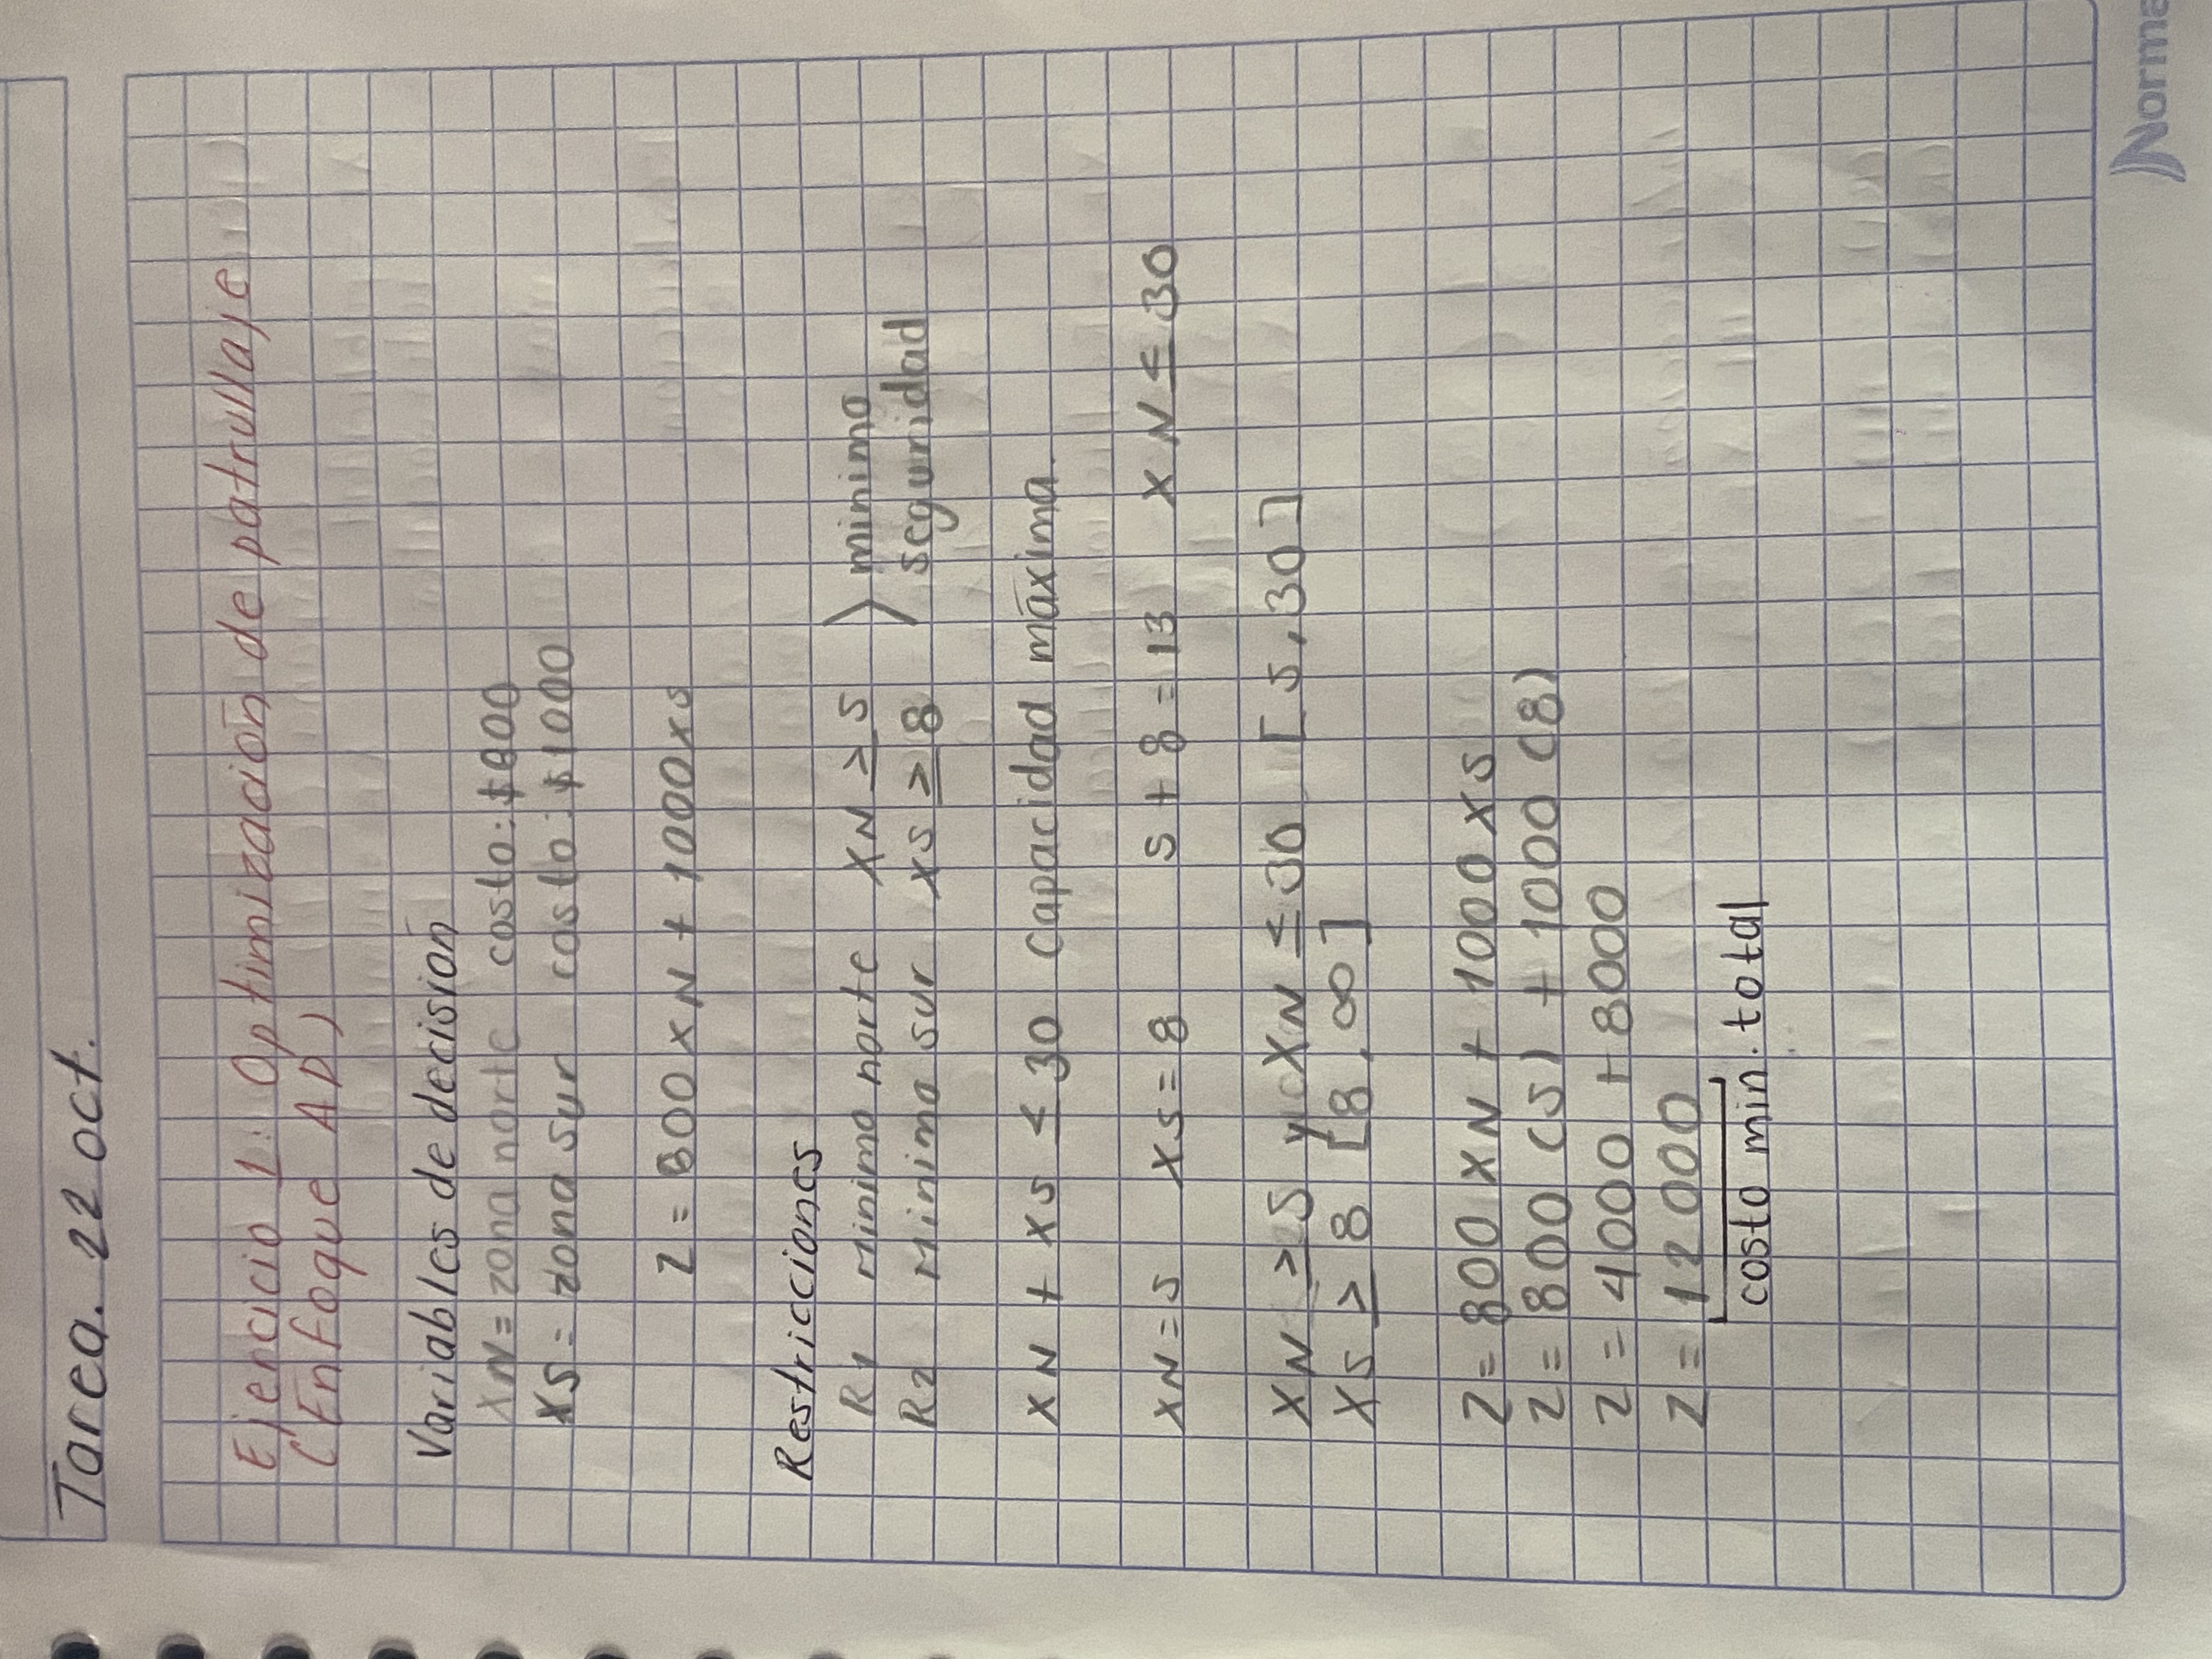 Tarea. 22 oct.
Ejercicio 1: Optimización de patrullaje
(Enfoque AD)
Variables de decisión
XN = zona norte costo: $800
XS = zona sur costo: $1000
Z = 800 XN + 1000 XS
Restricciones
R1 Minimo norte XN ≥ 5 } minimo
R2 Minimo sur XS ≥ 8 seguridad
XN + XS ≤ 30 Capacidad máxima.
XN = 5 XS = 8 5 + 8 = 13 XN ≤ 30
XN ≥ 5 y XN ≤ 30 [5, 30]
XS ≥ 8 [8, ∞]
Z = 800 XN + 1000 XS
Z = 800 (5) + 1000 (8)
Z = 4000 + 8000
Z = 12000
costo min. total
Norma